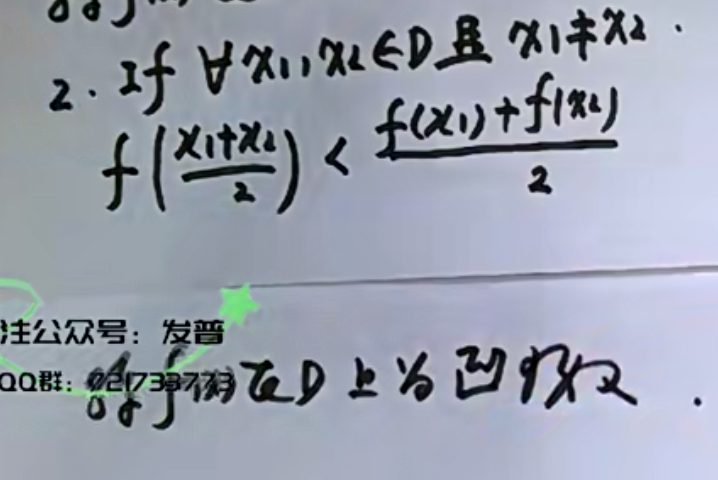 2. If ∀x1,x2∈D且 x1≠x2.
f((x1+x2)/2) < (f(x1)+f(x2))/2
注公众号：发普
QQ群：721733773
称f(x)在D上为凹函数.